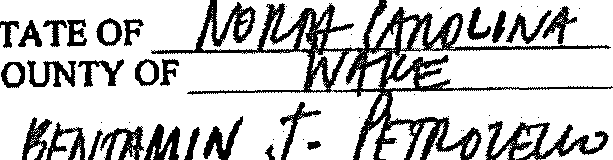 TATE OF NORTH CAROLINA
OUNTY OF WAKE
BENJAMIN J. PETROZELLO